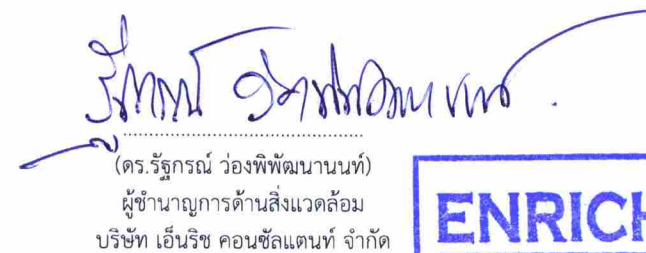 (ดร.รัฐกรณ์ ว่องพิพัฒนานนท์)
ผู้ชำนาญการด้านสิ่งแวดล้อม
บริษัท เอ็นริช คอนซัลแตนท์ จำกัด
ENRICH